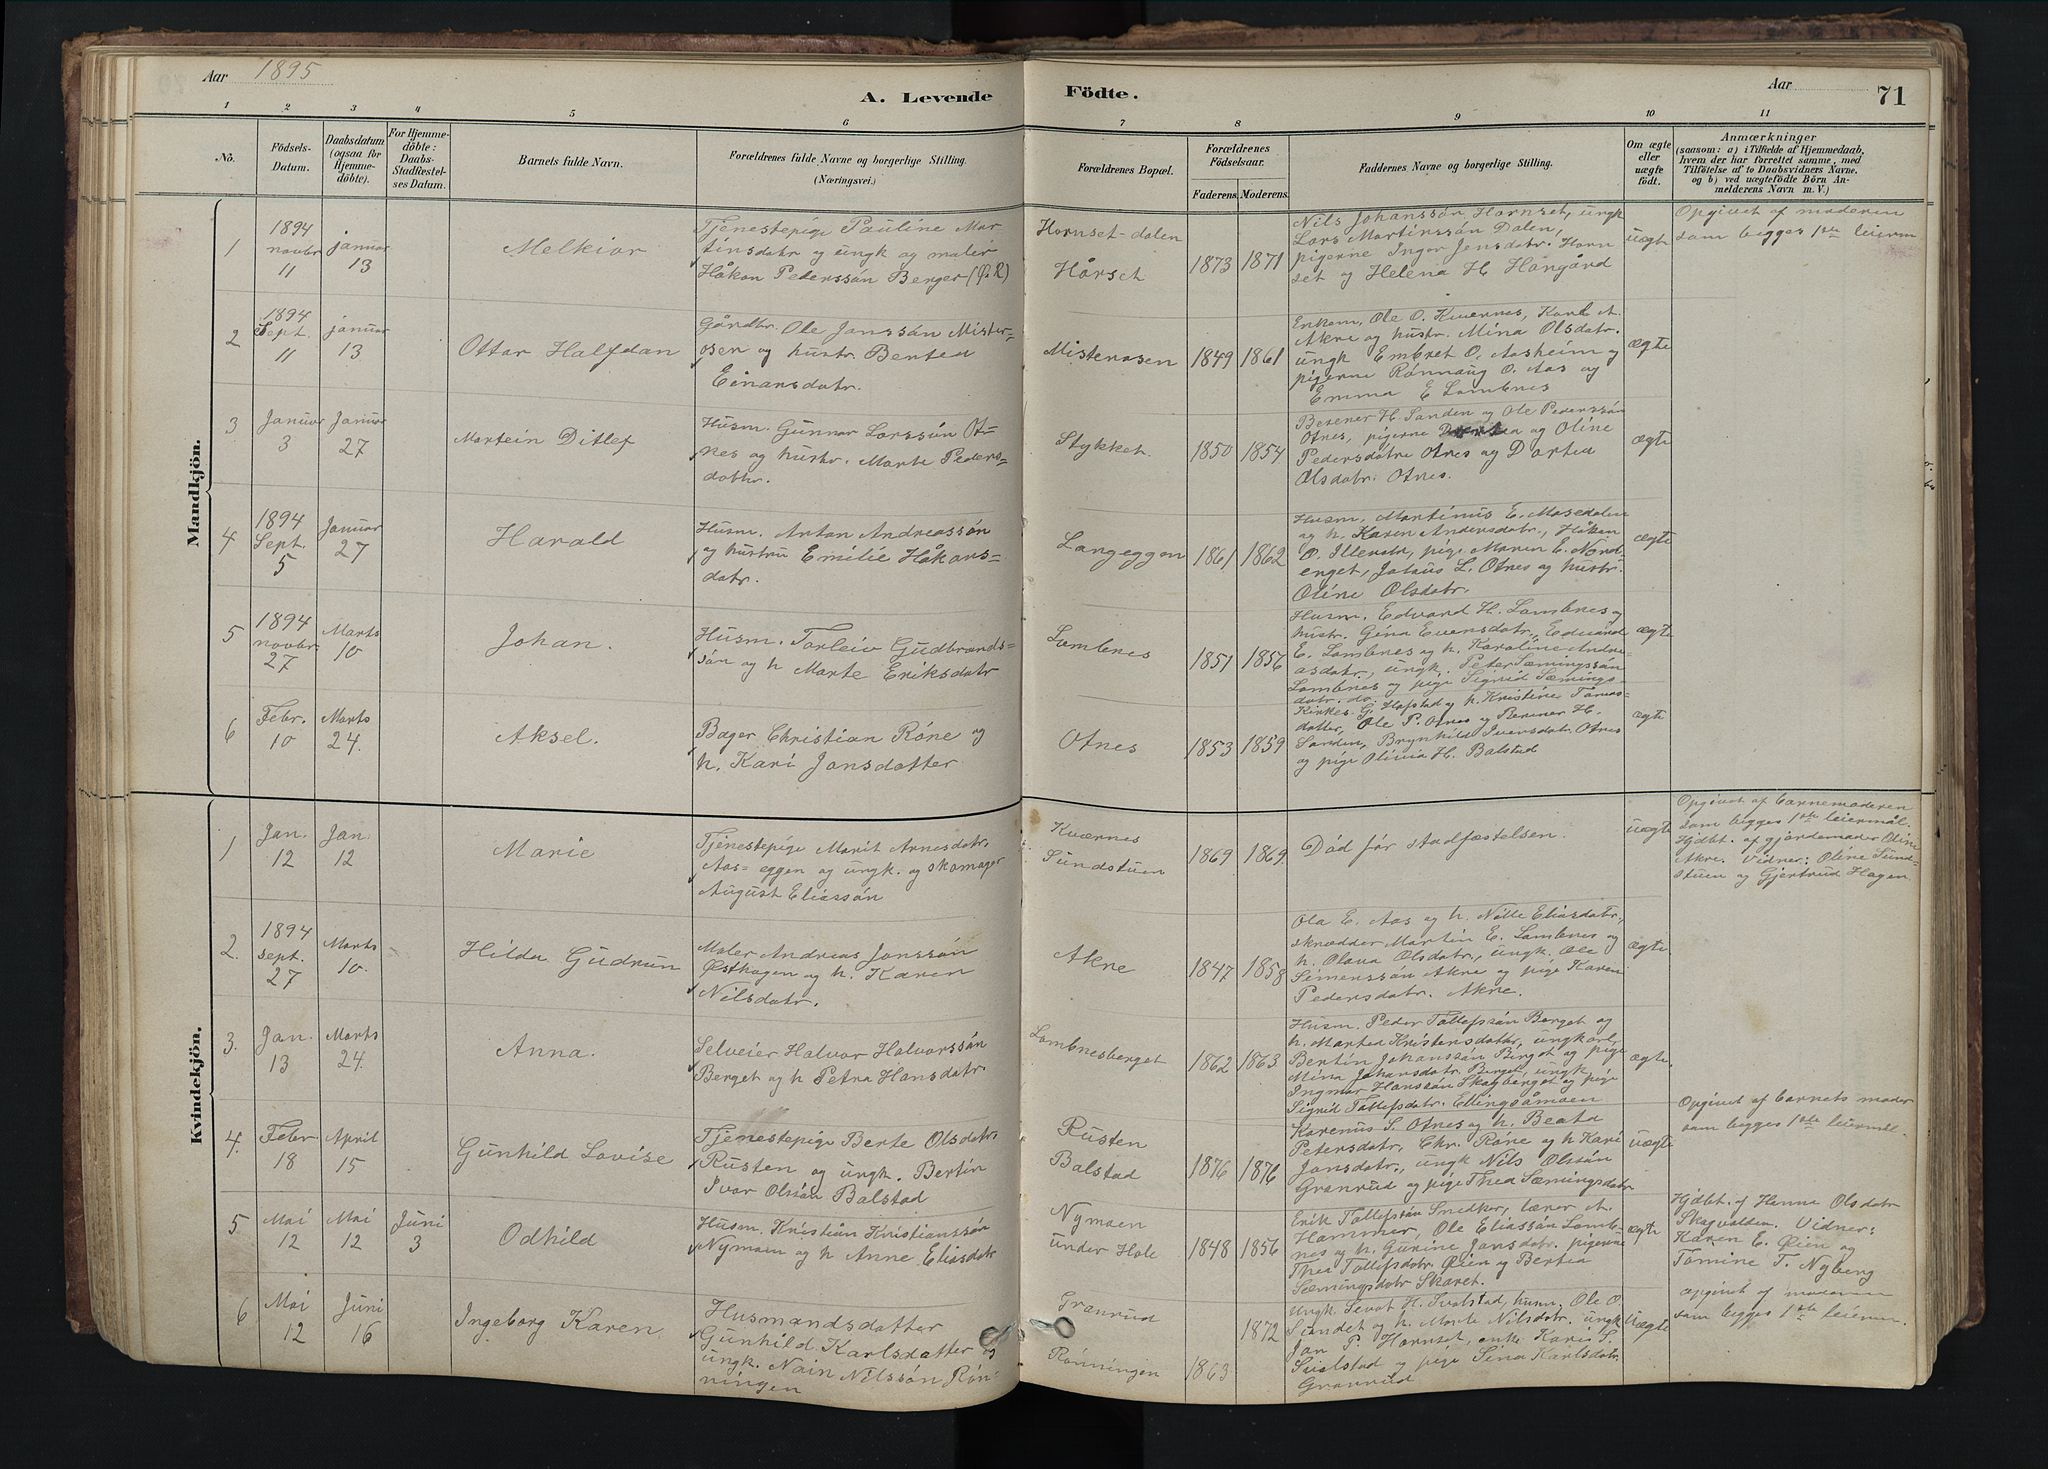 Aar 1895
A. Levende Födte.
Aar
71
1 2 3 4 5 6 7 8 9 10 11
No.
Födsels-Datum.
Daabsdatum (ogsaa for Hjemme-döbte).
For Hjemme-döbte: Daabs-Stadfæstel-ses Datum.
Barnets fulde Navn.
Forældrenes fulde Navne og borgerlige Stilling. (Næringsvei.)
Forældrenes Bopæl.
Forældrenes Födselsaar.
Faderens. Moderens.
Faddernes Navne og borgerlige Stilling.
Om ægte eller uægte födt.
Anmærkninger
(saasom: a) i Tilfælde af Hjemmedaab, hvem der har forrettet samme, med Tilföielse af to Daabsvidners Navne. og b) ved uægtefödte Börn An-melderens Navn m. V.)
Mandkjön.
1
1894 novbr. 11
januar 13
Melkior
Tjenestepige Pauline Mar
tinsdatr og ungk og maler
Håkon Pederssön Berger
Hornset-dalen
Hårset
1873 1871
Nils Johanssön Hornset, ungk
Lars Martinssön Dalen,
pigerne Inger Jensdatr. Horn
set og Helena H. Horgård
uægte
Opgivet af moderen
som begges 1ste leierm
2
1894 Sept. 11
januar 13
Ottar Halfdan
Gårdbr. Ole Janssön Mister-
osen og hustr. Bertea
Einarsdatr.
Misterosen
1849 1861
Enkem. Ole O. Kvernes, Karl A.
Akre og hustr. Mina Olsdatr.
ungk Embret O. Aasheim og
pigerne Rönnaug O. Aas og
Emma E Lombnes
ægte
3
Januar 3
Januar 27
Martin Ditlef
Husm. Gunnar Larssön Ot-
nes og hustr. Marte Peders-
datter.
Stykket
1850 1854
Berener H. Sanden og Ole Pederssön
Otnes, pigerne og Oline
Pedersdatre Otnes og Dortea
Olsdatr. Otnes.
ægte
4
1894 Sept. 5
Januar 27
Harald
Husm. Anton Andreassön
og hustru Emilie Håkons-
datr.
Langeggen
1861 1862
Husm. Martinus E. Mosedalen
og h. Karen Andersdatr., Håkon
O. Illerstr, pige Maren E. Nord-
enget, L. Otnes og hustr.
Oline Olsdatr.
ægte
5
1894 novbr. 27
Marts 10
Johan.
Husm. Torleiv Gudbrands-
sön og h Marte Eriksdatr
Lombnes
1851 1856
Husm. Edvard H. Lombnes og
hustr. Gina Evensdatr., Edvard
E. Lombnes og h. Karoline Andre-
asdatr, ungk. Peter Sæmingssön
Lombnes og pige Sigrid Sæmings-
datr. do
ægte
6
Febr. 10
Marts 24.
Aksel.
Bager Christian Röne og
h. Kari Jonsdatter
Otnes
1853 1859
Kirkes. G. Hofstad og h. Kristine
datter, Ole P. Otnes og Berener H.
Sanden, Brynhild Iversdatr. Otnes
og pige Olivia H. Balstad
ægte
Kvindekjön.
1
Jan. 12
Jan. 12
Marie
Tjenestepige Marit Arnesdatr.
Aas-eggen og ungk. og skomager
August Eliassön
Kværnes
Sundstuen
1869 1869
Död för stadfæstelsen.
uægte
Opgivet af barnemoderen
som begges 1ste leiermål.
Hjdbt. af gjordemoder Oline
Akre. Vidner: Oline Sund-
stuen og Gjertrud Hagen.
2.
1894 sept. 27
Marts 10.
Hilda Gudrun
Maler Andreas Jonssön
Østhagen og h. Karen
Nilsdatr.
Akre
1847 1858
Ola E. Aas og h. Nille Eliasdatr.,
skrædder Martin E. Lombnes og
h. Olava Olsdatr., ungk. Ole
Simenssön Akre og pige Karen
Pedersdatr. Akre.
ægte.
3.
Jan. 13
Marts 24.
Anna.
Selveier Halvor Halvorssön
Berget og h Petra Hansdatr.
Lombnesberget
1862 1863
Husm. Peder Tollefssön Berget og
h. Martea Kristensdatr, ungkarl
Bertin Johanssön Berget og pige
Mina Johansdatr. Berget, ungk
Ingmar Hanssön Skogberget og pige
Sigrid Tollefsdatr. Ellingsåmoen
ægte.
4.
Febr. 18
April 15
Gunhild Lovise
Tjenestepige Berte Olsdatr.
Rusten og ungk. Bertin
Ivar Olssön Balstad
Rusten
Balstad
1876 1876
Karenus S. Otnes og h. Beata
Petersdatr, Chr. Röne og h Kari
Jonsdatr., ungk Nils Olssön
Granrud og pige Thea Sæmingsdatr.
uægte
Opgivet af barnets moder
som begges 1ste leiermål.
5
Mai 12
Mai 12
Juni 3
Odhild
Husm. Kristian Kristianssön
Nymoen og h Anne Eliasdatr
Nymoen
under Hole
1848 1856
Erik Tollefssön Smedker, lærer A.
Hammer, Ole Eliassön Lomb-
nes og h. Gurine Jonsdatr. pigerne
Thea Tollefsdatr. Øien og Bertea
Sæmingsdatr Skåret.
ægte
Hjdbt. af Henne Olsdatr
Skagvolden. Vidner:
Karen E. Øien og
Tomine T. Nyberg
6
Mai 12
Juni 16
Ingeborg Karen.
Husmandsdatter
Gunhild Karlsdatter og
ungk. Nain Nilssön Rön-
ningen
Granrud
Rönningen
1863 1872
Ungk. Sevat H. Svalstad, husm. Ole O.
Sundet og h. Marte Nilsdatr. ungk
Jan P. Hornset, enke Kari S.
Svalstad og pige Sina Karlsdatr.
Granrud
uægte
opgivet af moderen
som begges 1ste leierm.